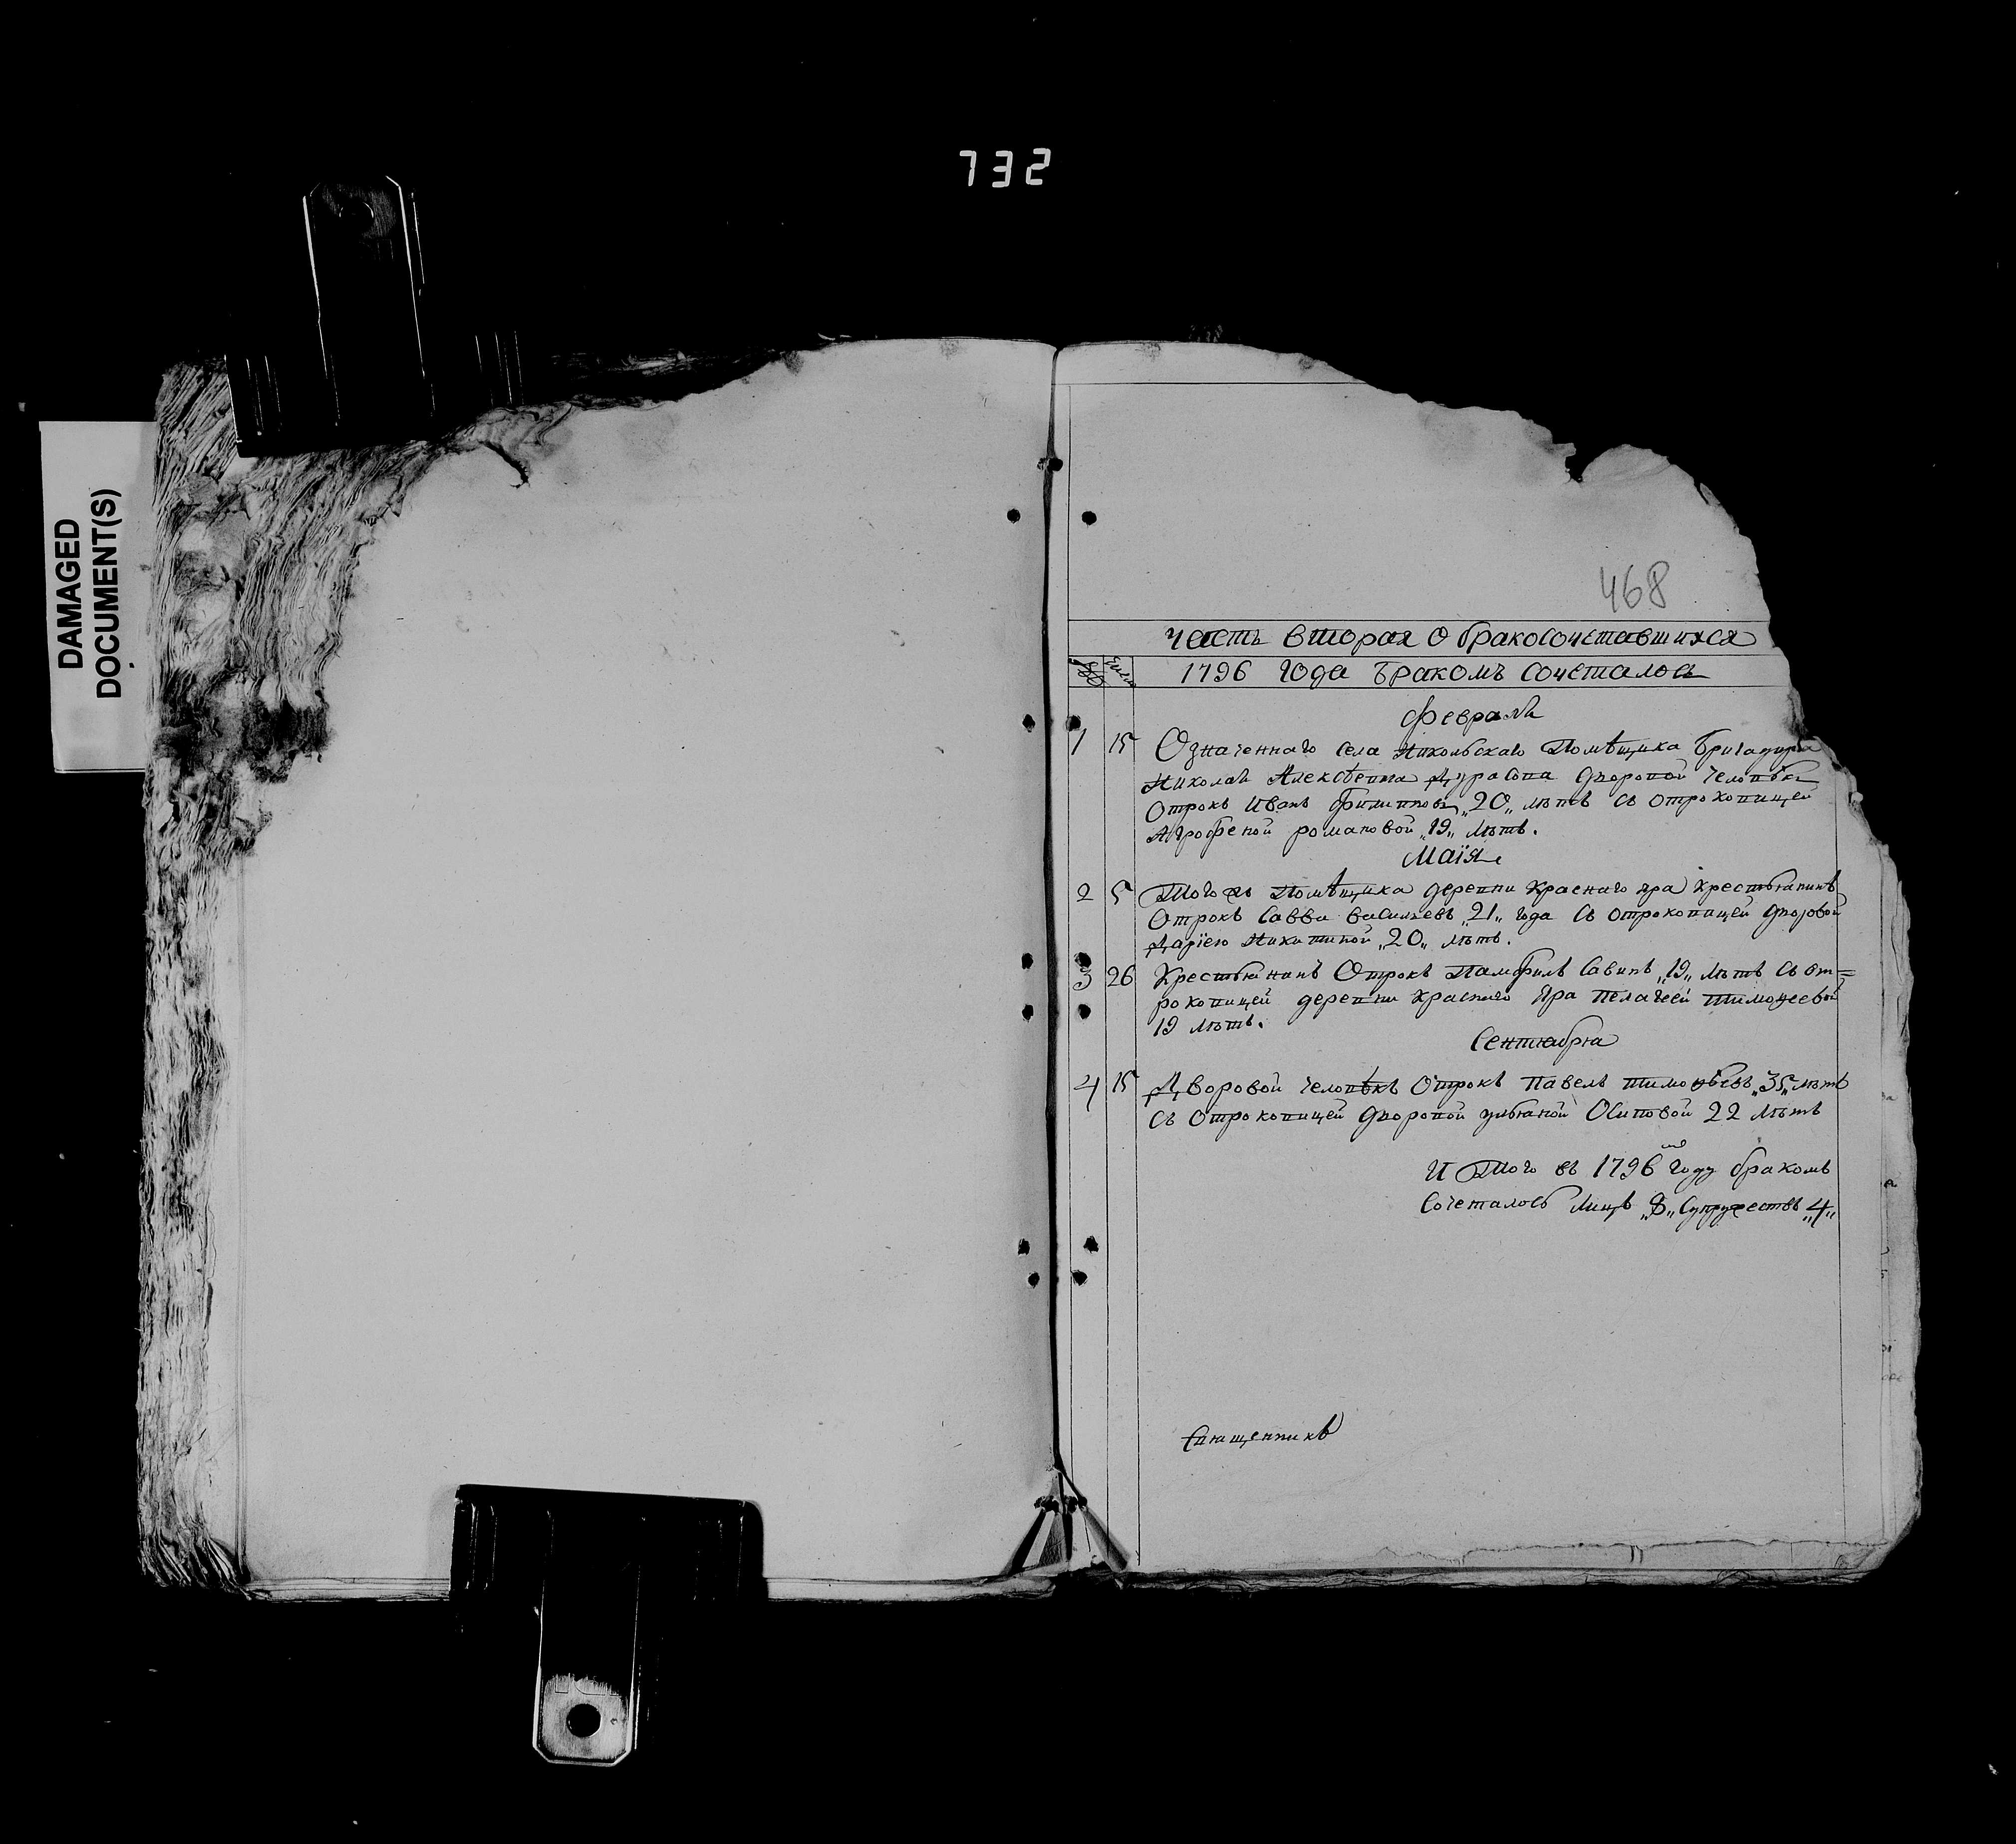 732
DAMAGED
DOCUMENT(S)
468
часть вторая о бракосочетавшихся
№ числа
1796 года бракомъ сочеталось
февраля
1 15 Означеннаго села Никольскаго Помѣщика бригадира
Николая Алексѣевича Дурасова дворовой человѣкъ
Отрокъ Иванъ Филипповъ „20„ лѣтъ съ отроковицей
Агрофеной романовой „19„ лѣтъ.
Маїя
2 5 Того жъ Помѣщика деревни Краснаго яра крестьянинъ
Отрокъ Савва васильевъ „21„ года съ отроковицей дворовой
Дарїею Никитиной „20„ лѣтъ.
3 26 Крестьянинъ Отрокъ Памфилъ Савинъ „19„ лѣтъ съ от=
роковицей деревни краснаго Яра Пелагеей тимоѳеевой
19 лѣтъ.
Сентября
4 15 Дворовой человѣкъ Отрокъ Павелъ тимоѳѣевъ „35„ лѣтъ
съ отроковицей дворовой ульяной Осиповой 22 лѣтъ
И Того въ 1796 году бракомъ
сочеталось лицъ „8„ супружествъ „4„
Священникъ